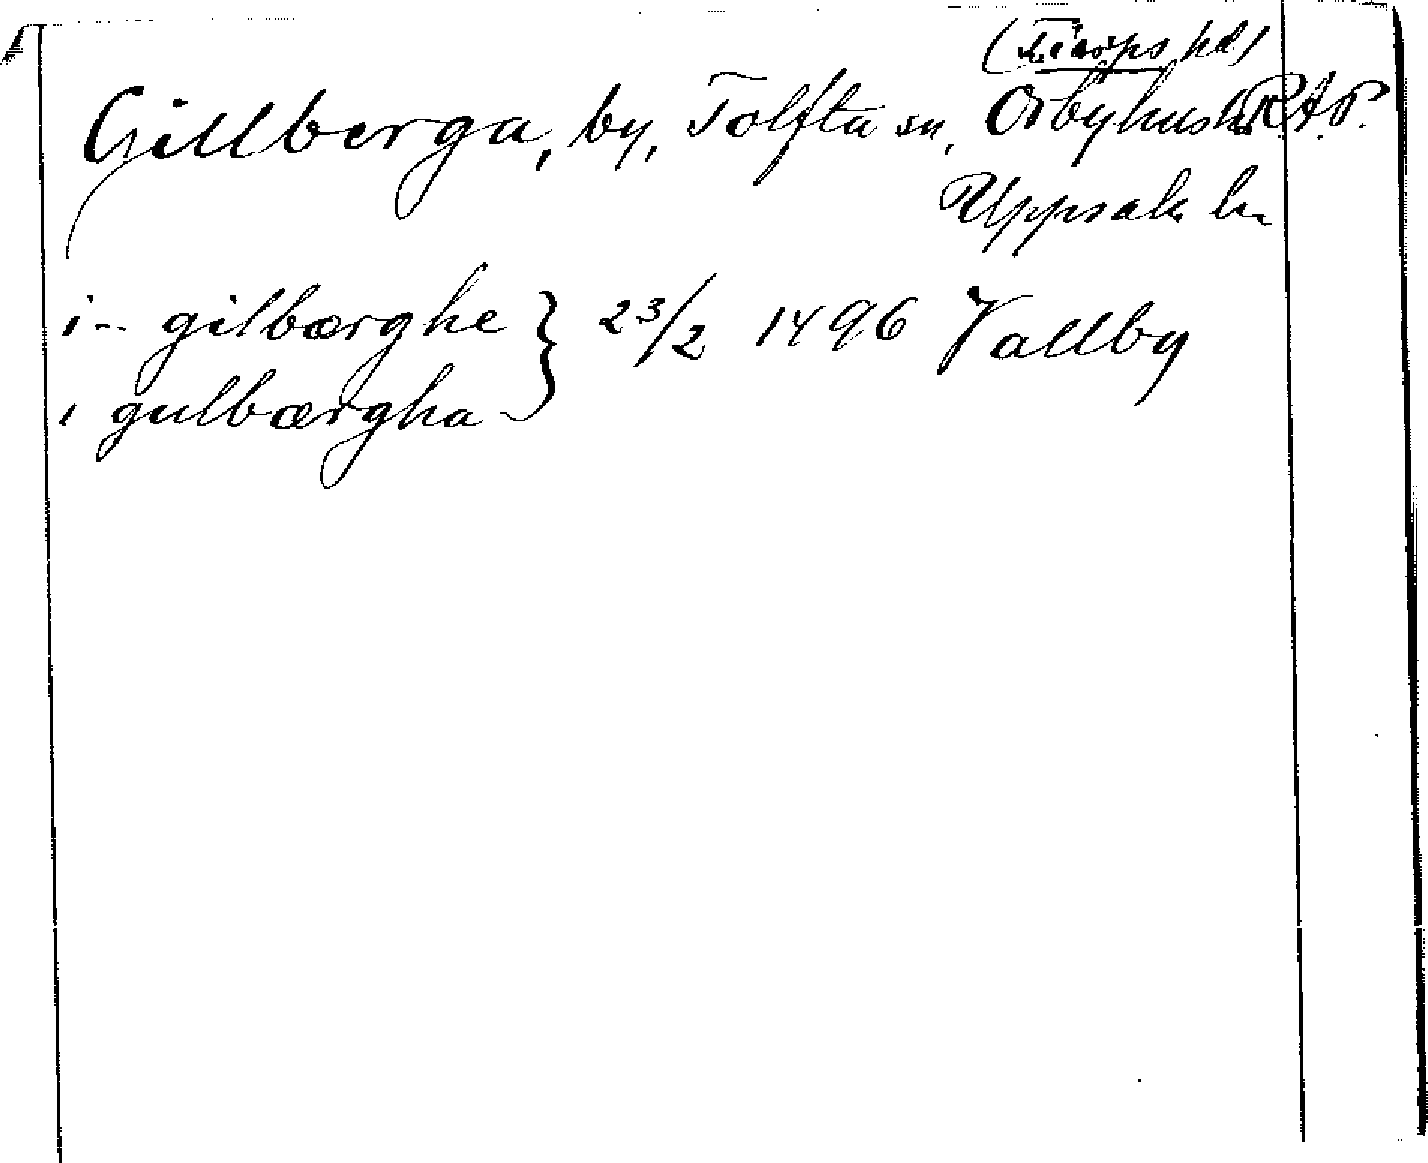 (Tierps hd)
Gillberga, by, Tolfta sn, Örbyhus h. R.A.P.
Uppsala ln
i -- gilbærghe } 23/2 1496 Vallby
i gulbærgha